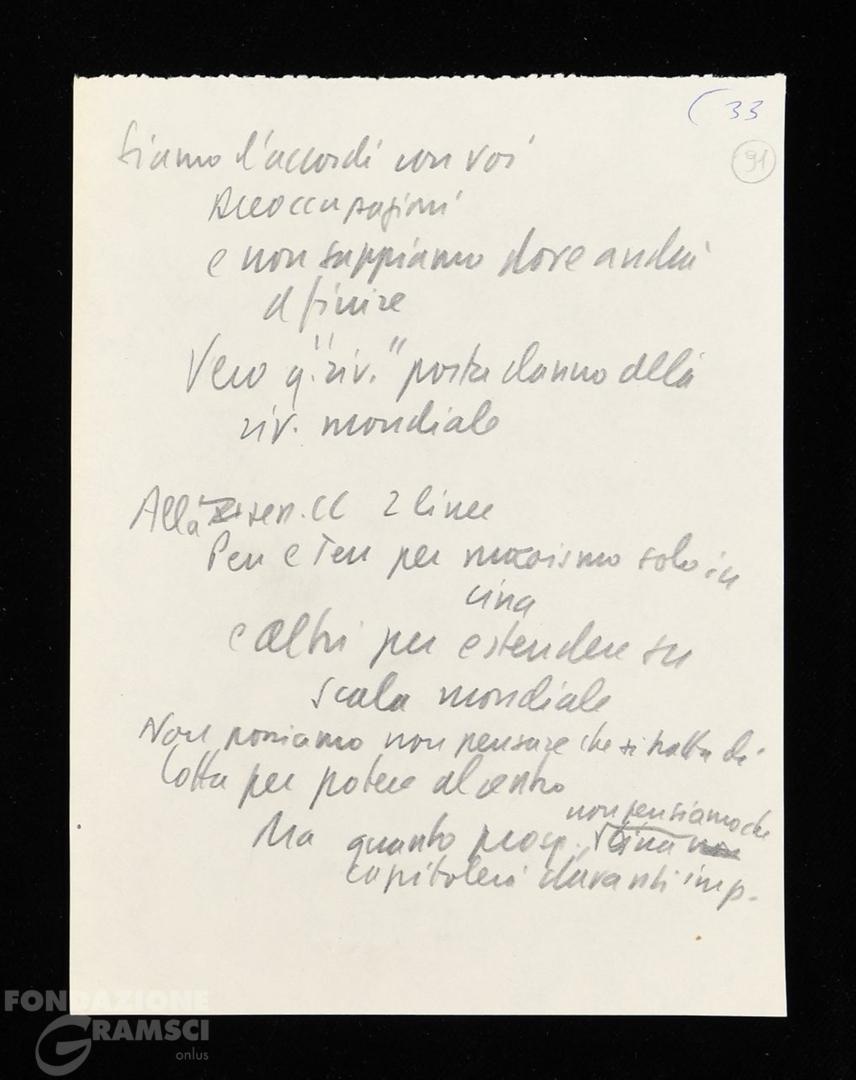 ( 33
91
Siamo d'accordi con voi
preoccupazioni
e non sappiamo dove andrà
a finire
Vero q. "riv." porta danno alla
riv. mondiale
Alla sen. CC 2 linee
Pen e Ten per maoismo solo in
cina
e altri per estendere su
scala mondiale
Non possiamo non pensare che si tratta di
lotta per potere al centro
non pensiamo che
Ma quanto prosp. Cina
capitolerà davanti imp.
FONDAZIONE
GRAMSCI
onlus